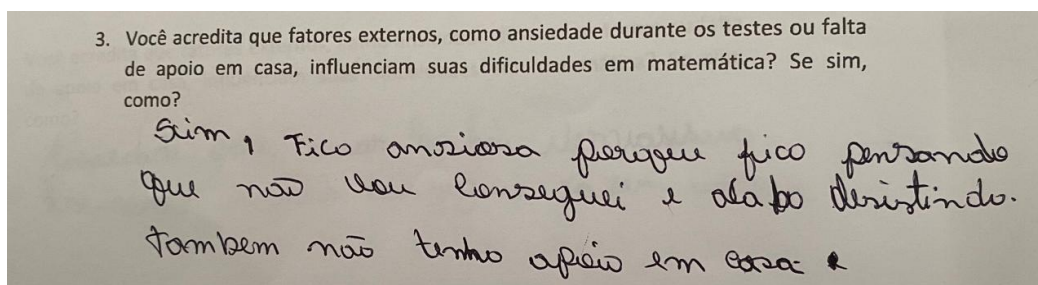 3. Você acredita que fatores externos, como ansiedade durante os testes ou falta
de apoio em casa, influenciam suas dificuldades em matemática? Se sim,
como?
Sim, Fico ansiosa porque fico pensando
que não vou consegui e acabo desistindo.
Tambem não tenho apoio em casa.